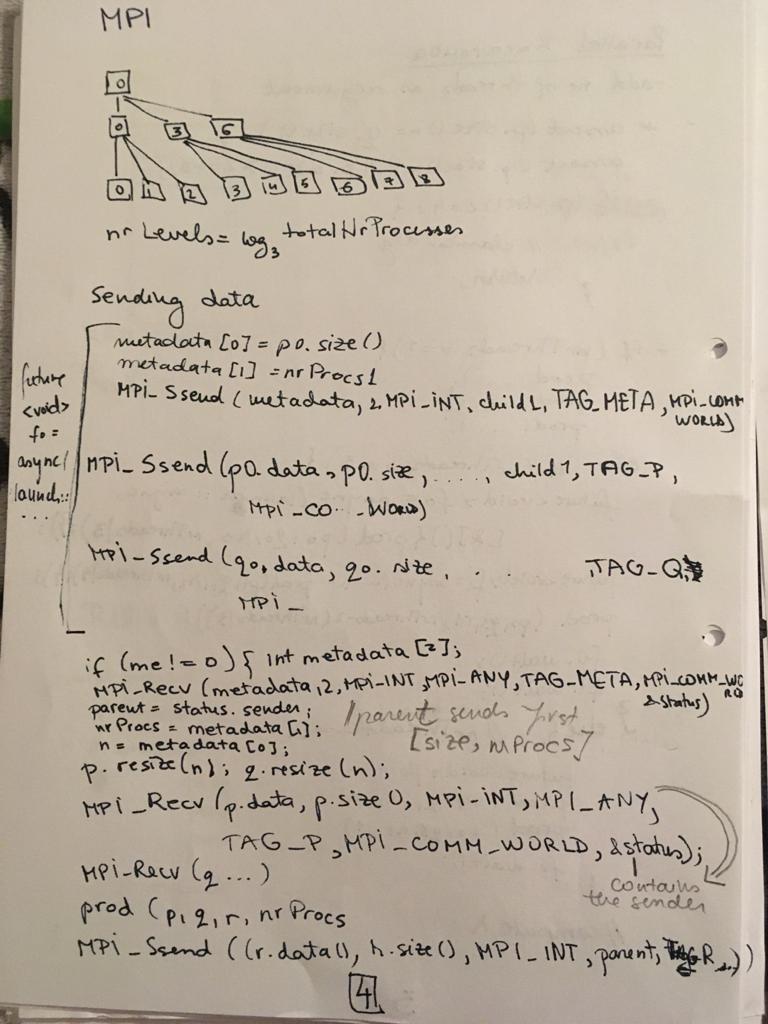 MPI
0
0 3 6
0 1 2 3 4 5 6 7 8
nr Levels = log3 totalNrProcesses
Sending data
metadata [0] = p0.size()
metadata [1] = nrProcs1
MPI_Ssend (metadata, 2, MPI_INT, child1, TAG_META, MPI_COMM
WORLD)
future
<void>
f0 =
async(
launch::
...
MPI_Ssend (p0.data, p0.size, ...., child1, TAG_P,
MPI_CO... WORLD)
MPI_Ssend (q0,data, q0.size, .. ,TAG_Q,
MPI_
if (me != 0) { int metadata [2];
MPI_Recv (metadata,2,MPI_INT,MPI_ANY,TAG_META,MPI_COMM_WO
RLD
&status)
parent = status.sender;
nrProcs = metadata[1];
n = metadata[0];
/parent sends first
[size, nrProcs]
p.resize(n); q.resize(n);
MPI_Recv (p.data, p.size(), MPI_INT, MPI_ANY,
TAG_P, MPI_COMM_WORLD, &status);
contains
the sender
MPI_Recv (q ...)
prod (p, q, r, nrProcs
MPI_Ssend ((r.data(), r.size(), MPI_INT, parent, TAG_R ...))
4